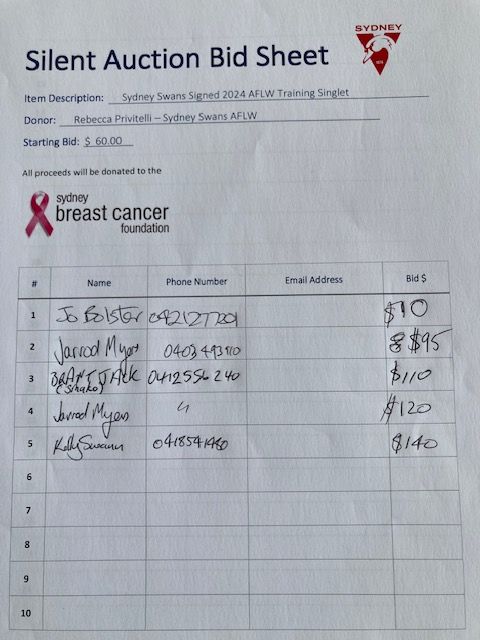 SYDNEY
Silent Auction Bid Sheet
Item Description: Sydney Swans Signed 2024 AFLW Training Singlet
Donor: Rebecca Privitelli – Sydney Swans AFLW
Starting Bid: $ 60.00
All proceeds will be donated to the
sydney
breast cancer
foundation
# Name Phone Number Email Address Bid $
1 Jo Bolster $90
2 Jarrod Myers $95
3 $110
4 Jarrod Myers " $120
5 Kelly 0418541480 $140
6
7
8
9
10